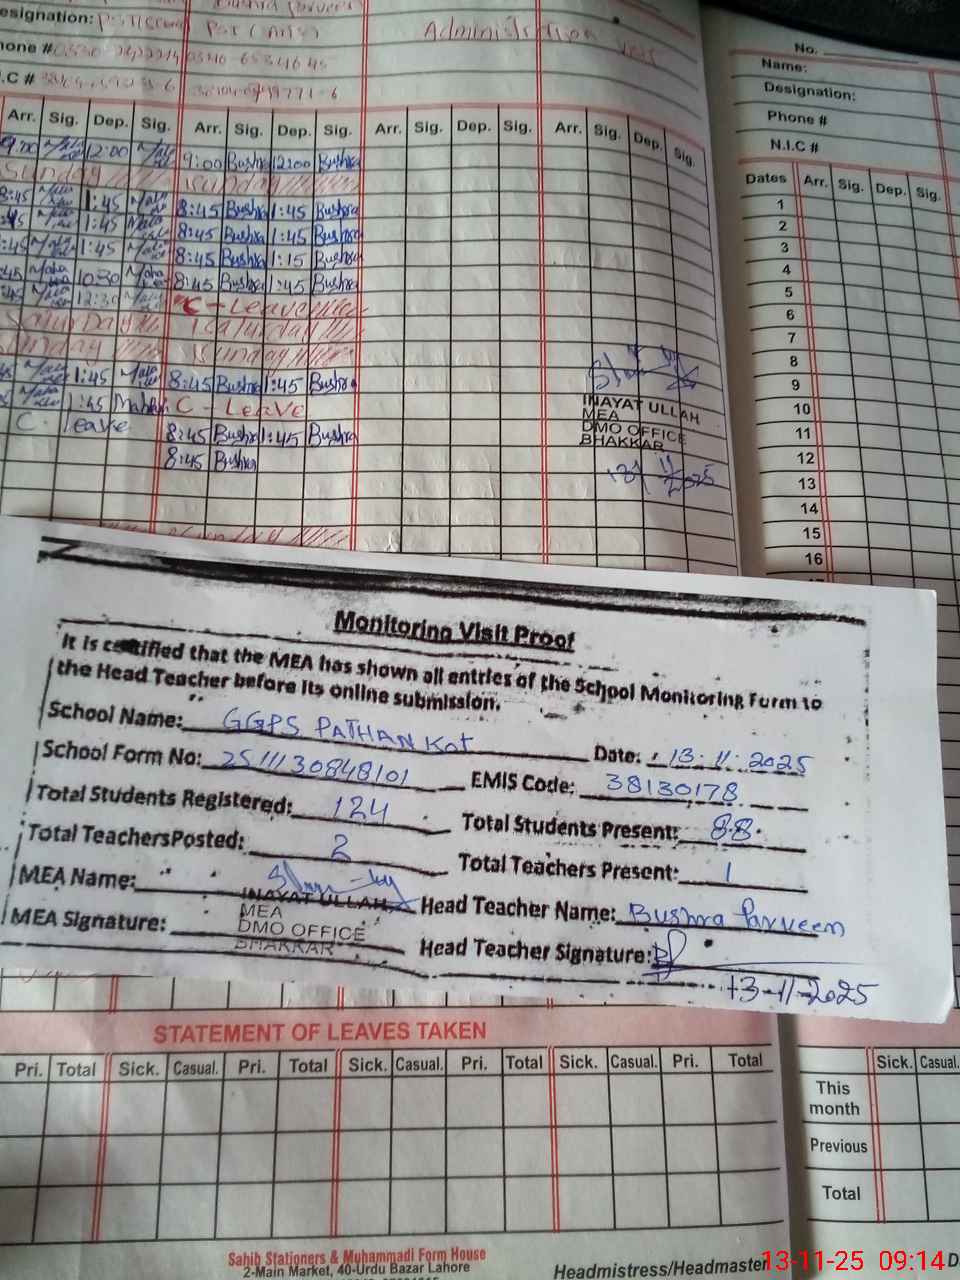 Bushra Parveen
esignation: PST(Sconi Pst (Arts) Administrition Visit
hone #
.C #
Arr. Sig. Dep. Sig. Arr. Sig. Dep. Sig. Arr. Sig. Dep. Sig. Arr. Sig. Dep. Sig.
9:00 12:00 9:00 Bushra 12:00 Bushra
Sunday Sunday
8:45 1:45 8:45 Bushra 1:45 Bushra
:45 1:45 8:45 Bushra 1:45 Bushra
:45 1:45 8:45 Bushra 1:15 Bushra
:45 10:30 8:45 Bushra 1:45 Bushra
:45 12:30 C - Leave
Saturday Saturday
Sunday Sunday
1:45 8:45 Bushra 1:45 Bushra
1:45 C - Leave
C. leave 8:45 Bushra 1:45 Bushra
8:45 Bushra
INAYAT ULLAH
MEA
DMO OFFICE
BHAKKAR
13/11/2025
No.
Name:
Designation:
Phone #
N.I.C #
Dates Arr. Sig. Dep. Sig.
1
2
3
4
5
6
7
8
9
10
11
12
13
14
15
16
Monitoring Visit Proof
It is certified that the MEA has shown all entries of the School Monitoring Form to
the Head Teacher before its online submission.
School Name: GGPS PATHAN Kot Date: 13.11.2025
School Form No: 2511130848101 EMIS Code: 38130178
Total Students Registered: 124 Total Students Present: 88
Total Teachers Posted: 2 Total Teachers Present: 1
MEA Name: INAYAT ULLAH Head Teacher Name: Bushra Parveen
MEA
MEA Signature: DMO OFFICE Head Teacher Signature:
BHAKKAR
13-11-2025
STATEMENT OF LEAVES TAKEN
Pri. Total Sick. Casual. Pri. Total Sick. Casual. Pri. Total Sick. Casual. Pri. Total
Sick. Casual.
This month
Previous
Total
Sahib Stationers & Muhammadi Form House
2-Main Market, 40-Urdu Bazar Lahore
Headmistress/Headmaster
13-11-25 09:14